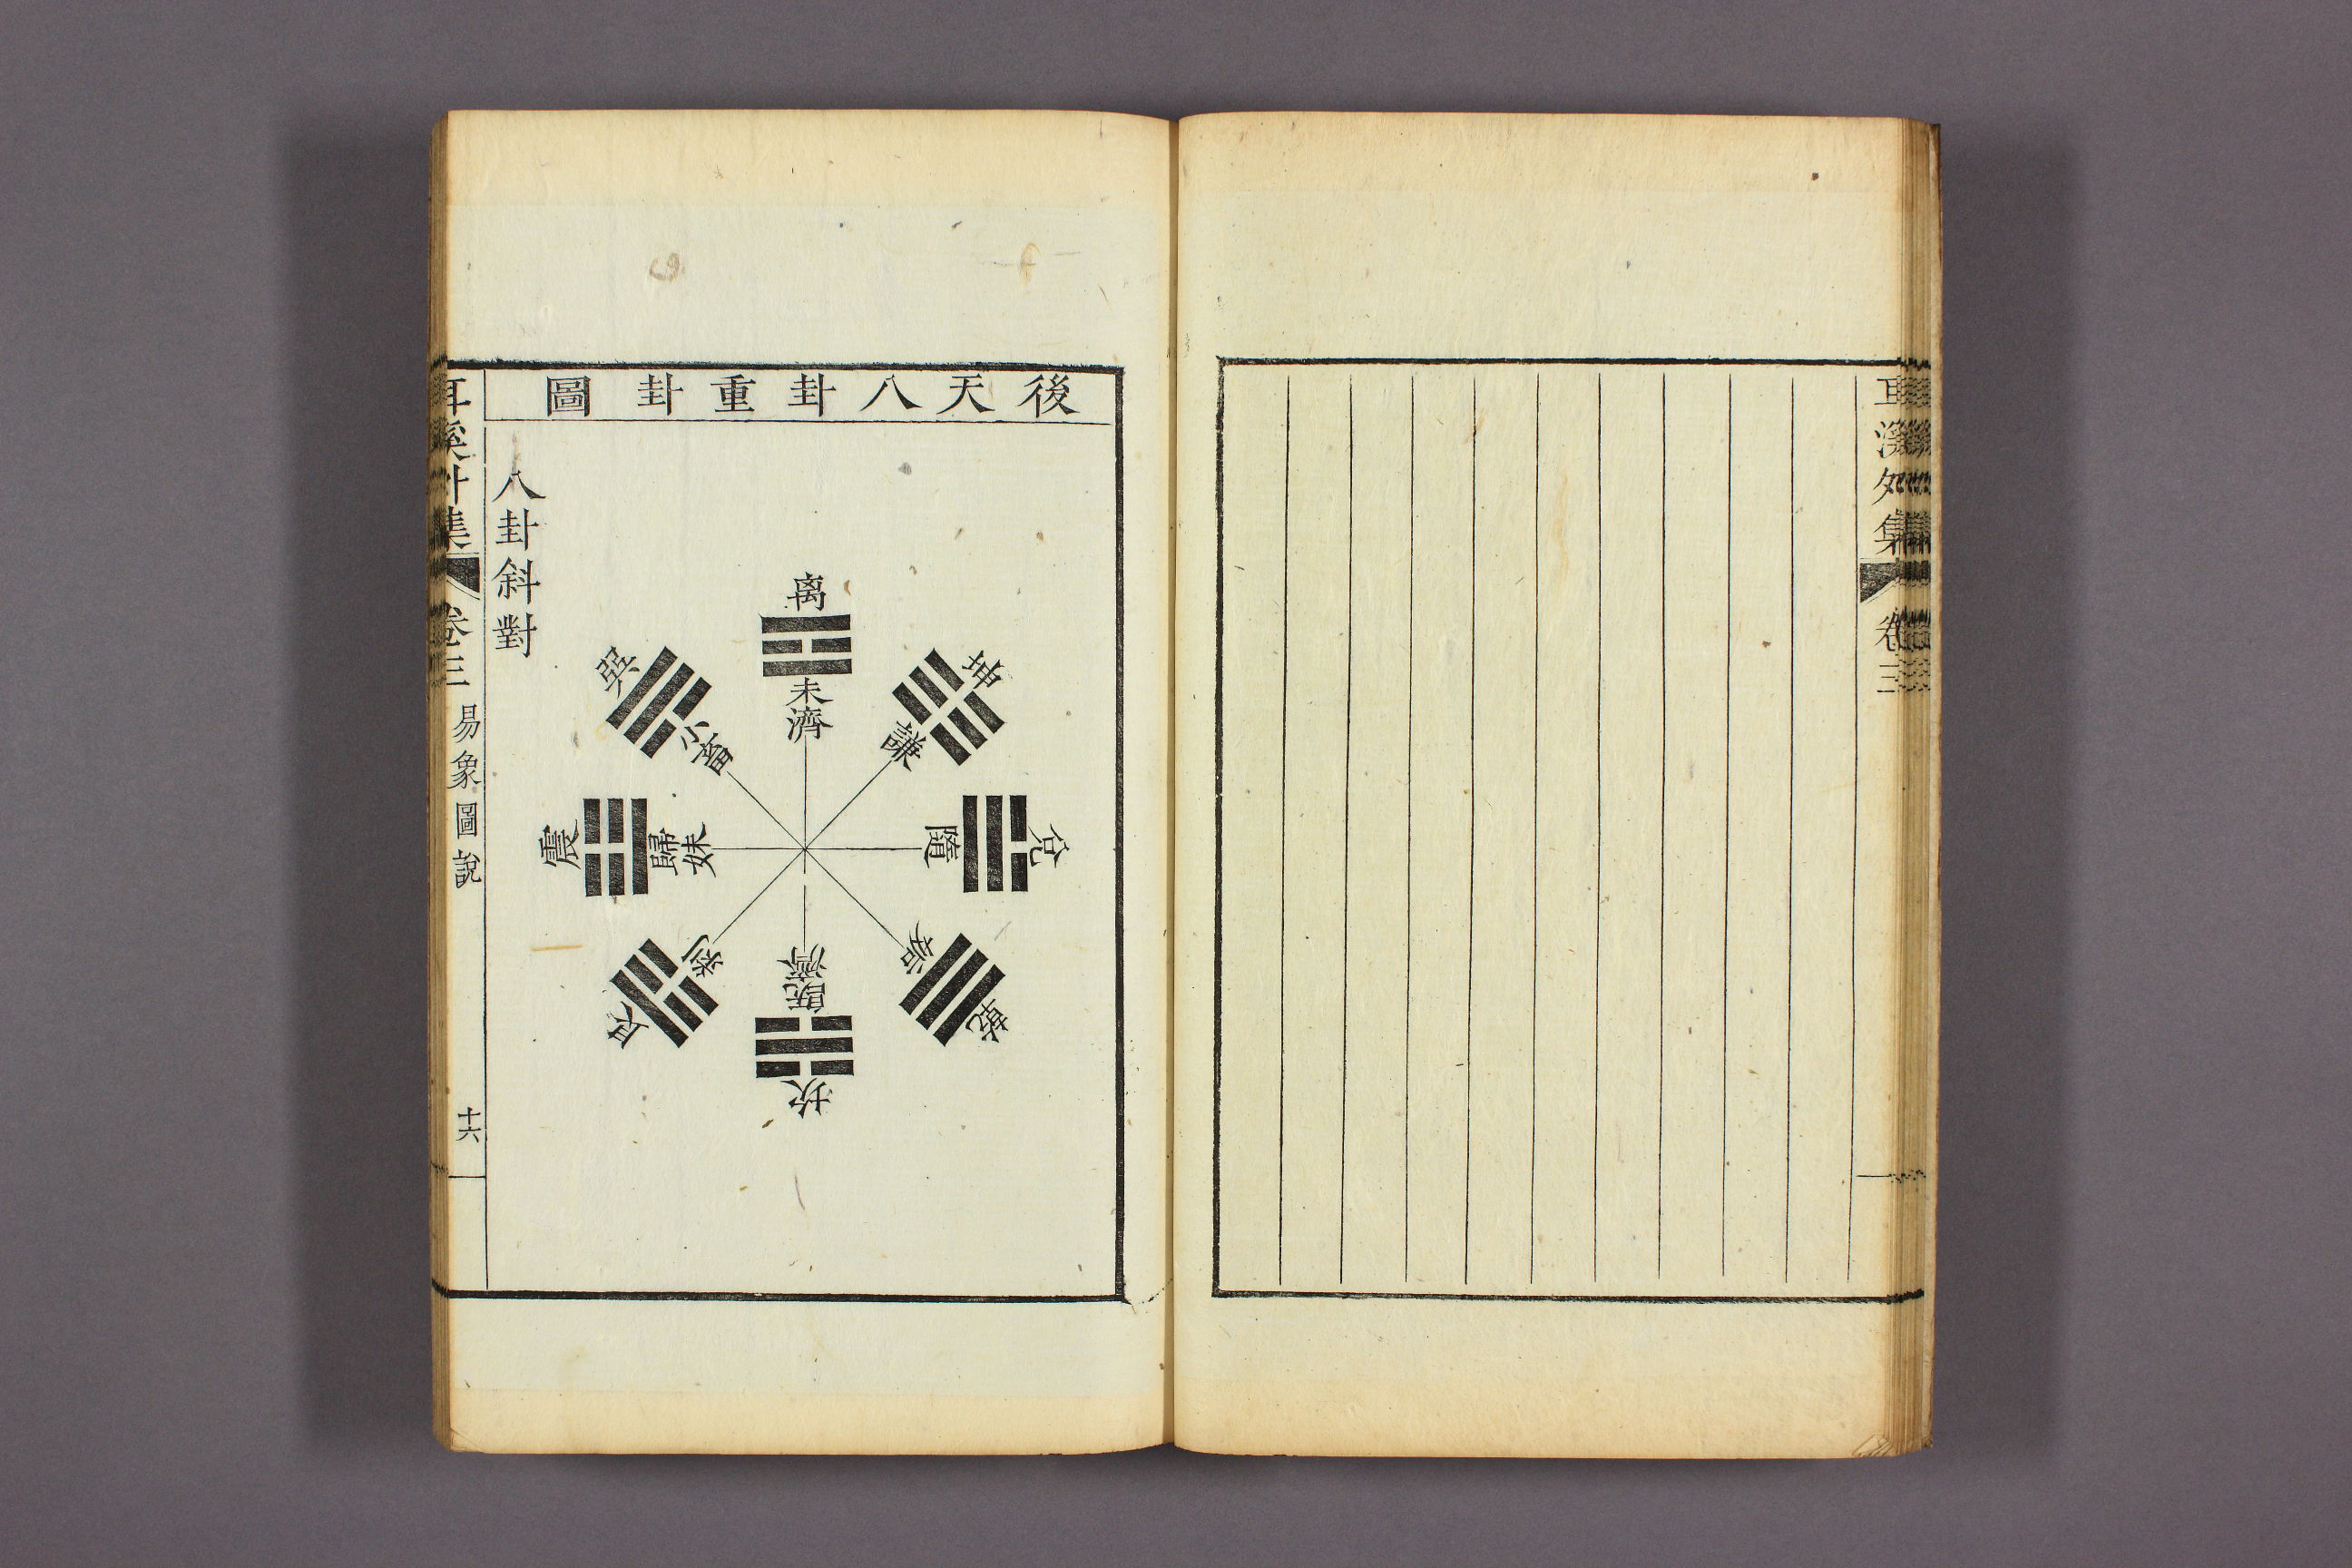 耳溪外集
卷三
後天八卦重卦圖
离
未濟
坤
謙
兌
隨
乾
姤
坎
既濟
艮
剝
震
歸妹
巽
小畜
八卦斜對
耳溪外集
卷三
易象圖說
十六